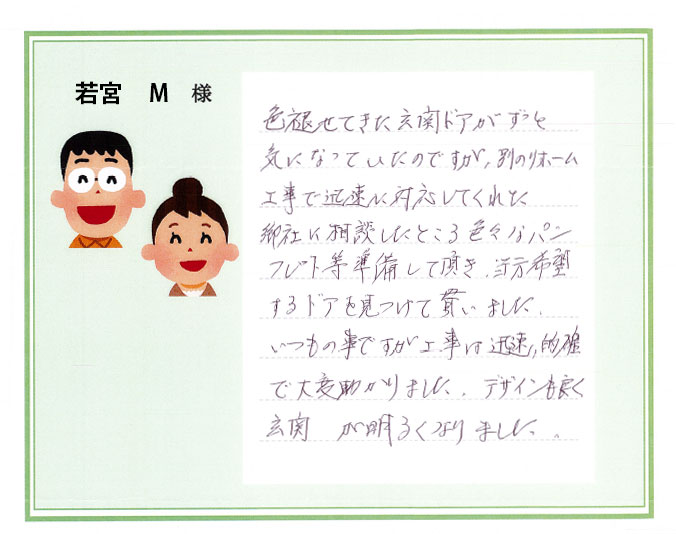 若宮 M 様
色褪せてきた玄関ドアがずっと
気になっていたのですが、別のリホーム
工事で迅速に対応してくれた
御社に相談したところ色々なパン
フレト等準備して頂き、当方希望
するドアを見つけて貰いました。
いつもの事ですが工事は迅速,的確
で大変助かりました。デザインも良く
玄関 が明るくなりました。